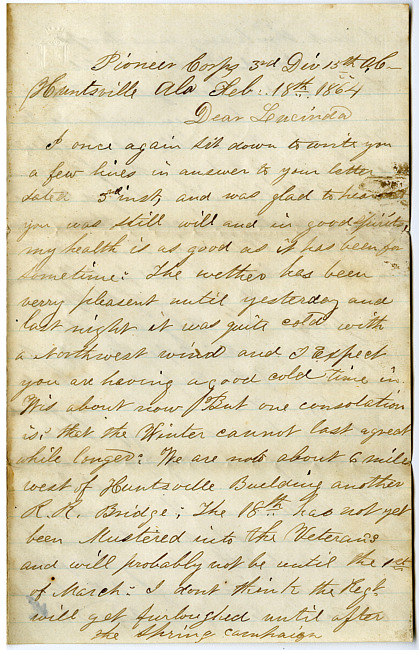 Pioneer Corps 3rd Div 15th A,C-
Huntsville Ala Feb.. 18th 1864
Dear Lucinda
I once again sit down to write you
a few lines in answer to your letter
dated 3rd inst, and was glad to hear
you was still well and in good spirits,
my health is as good as it has been for
sometime: The wether has been
verry pleasent until yesterday and
last night it was quite cold with
a Northwest wind and I Expect
you are having a good cold time in
Wis about now But one consolation
is; that the Winter cannot last a great
while longer: We are now about 6 miles
west of Huntsville Building another
R. R. Bridge; The 18th has not yet
been Mustered into the Veterans
and will probably not be until the 1st
of March: I dont think the Regt
will get furloughed until after
the Spring campaign